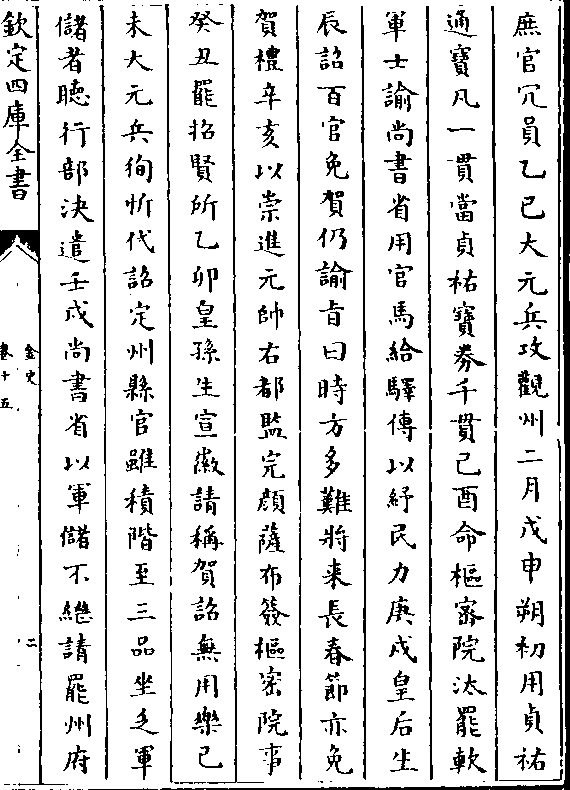 庶官冗員乙巳大元兵攻觀州二月戊申朔初用貞祐
通寳凡一貫當貞祐寳劵千貫己酉命樞密院汰罷軟
軍士諭尚書省用官馬給驛傳以紓民力庚戌皇后生
辰詔百官免賀仍諭㫖曰時方多難將来長春節亦免
賀禮辛亥以崇進元帥右都監完顔薩布簽樞密院事
癸丑罷招賢所乙卯皇孫生宣徽請稱賀詔無用樂己
未大元兵徇忻代詔定州縣官雖積階至三品坐乏軍
儲者聴行部決遣壬戌尚書省以軍儲不繼請罷州府
欽定四庫全書
金史
卷十五
二